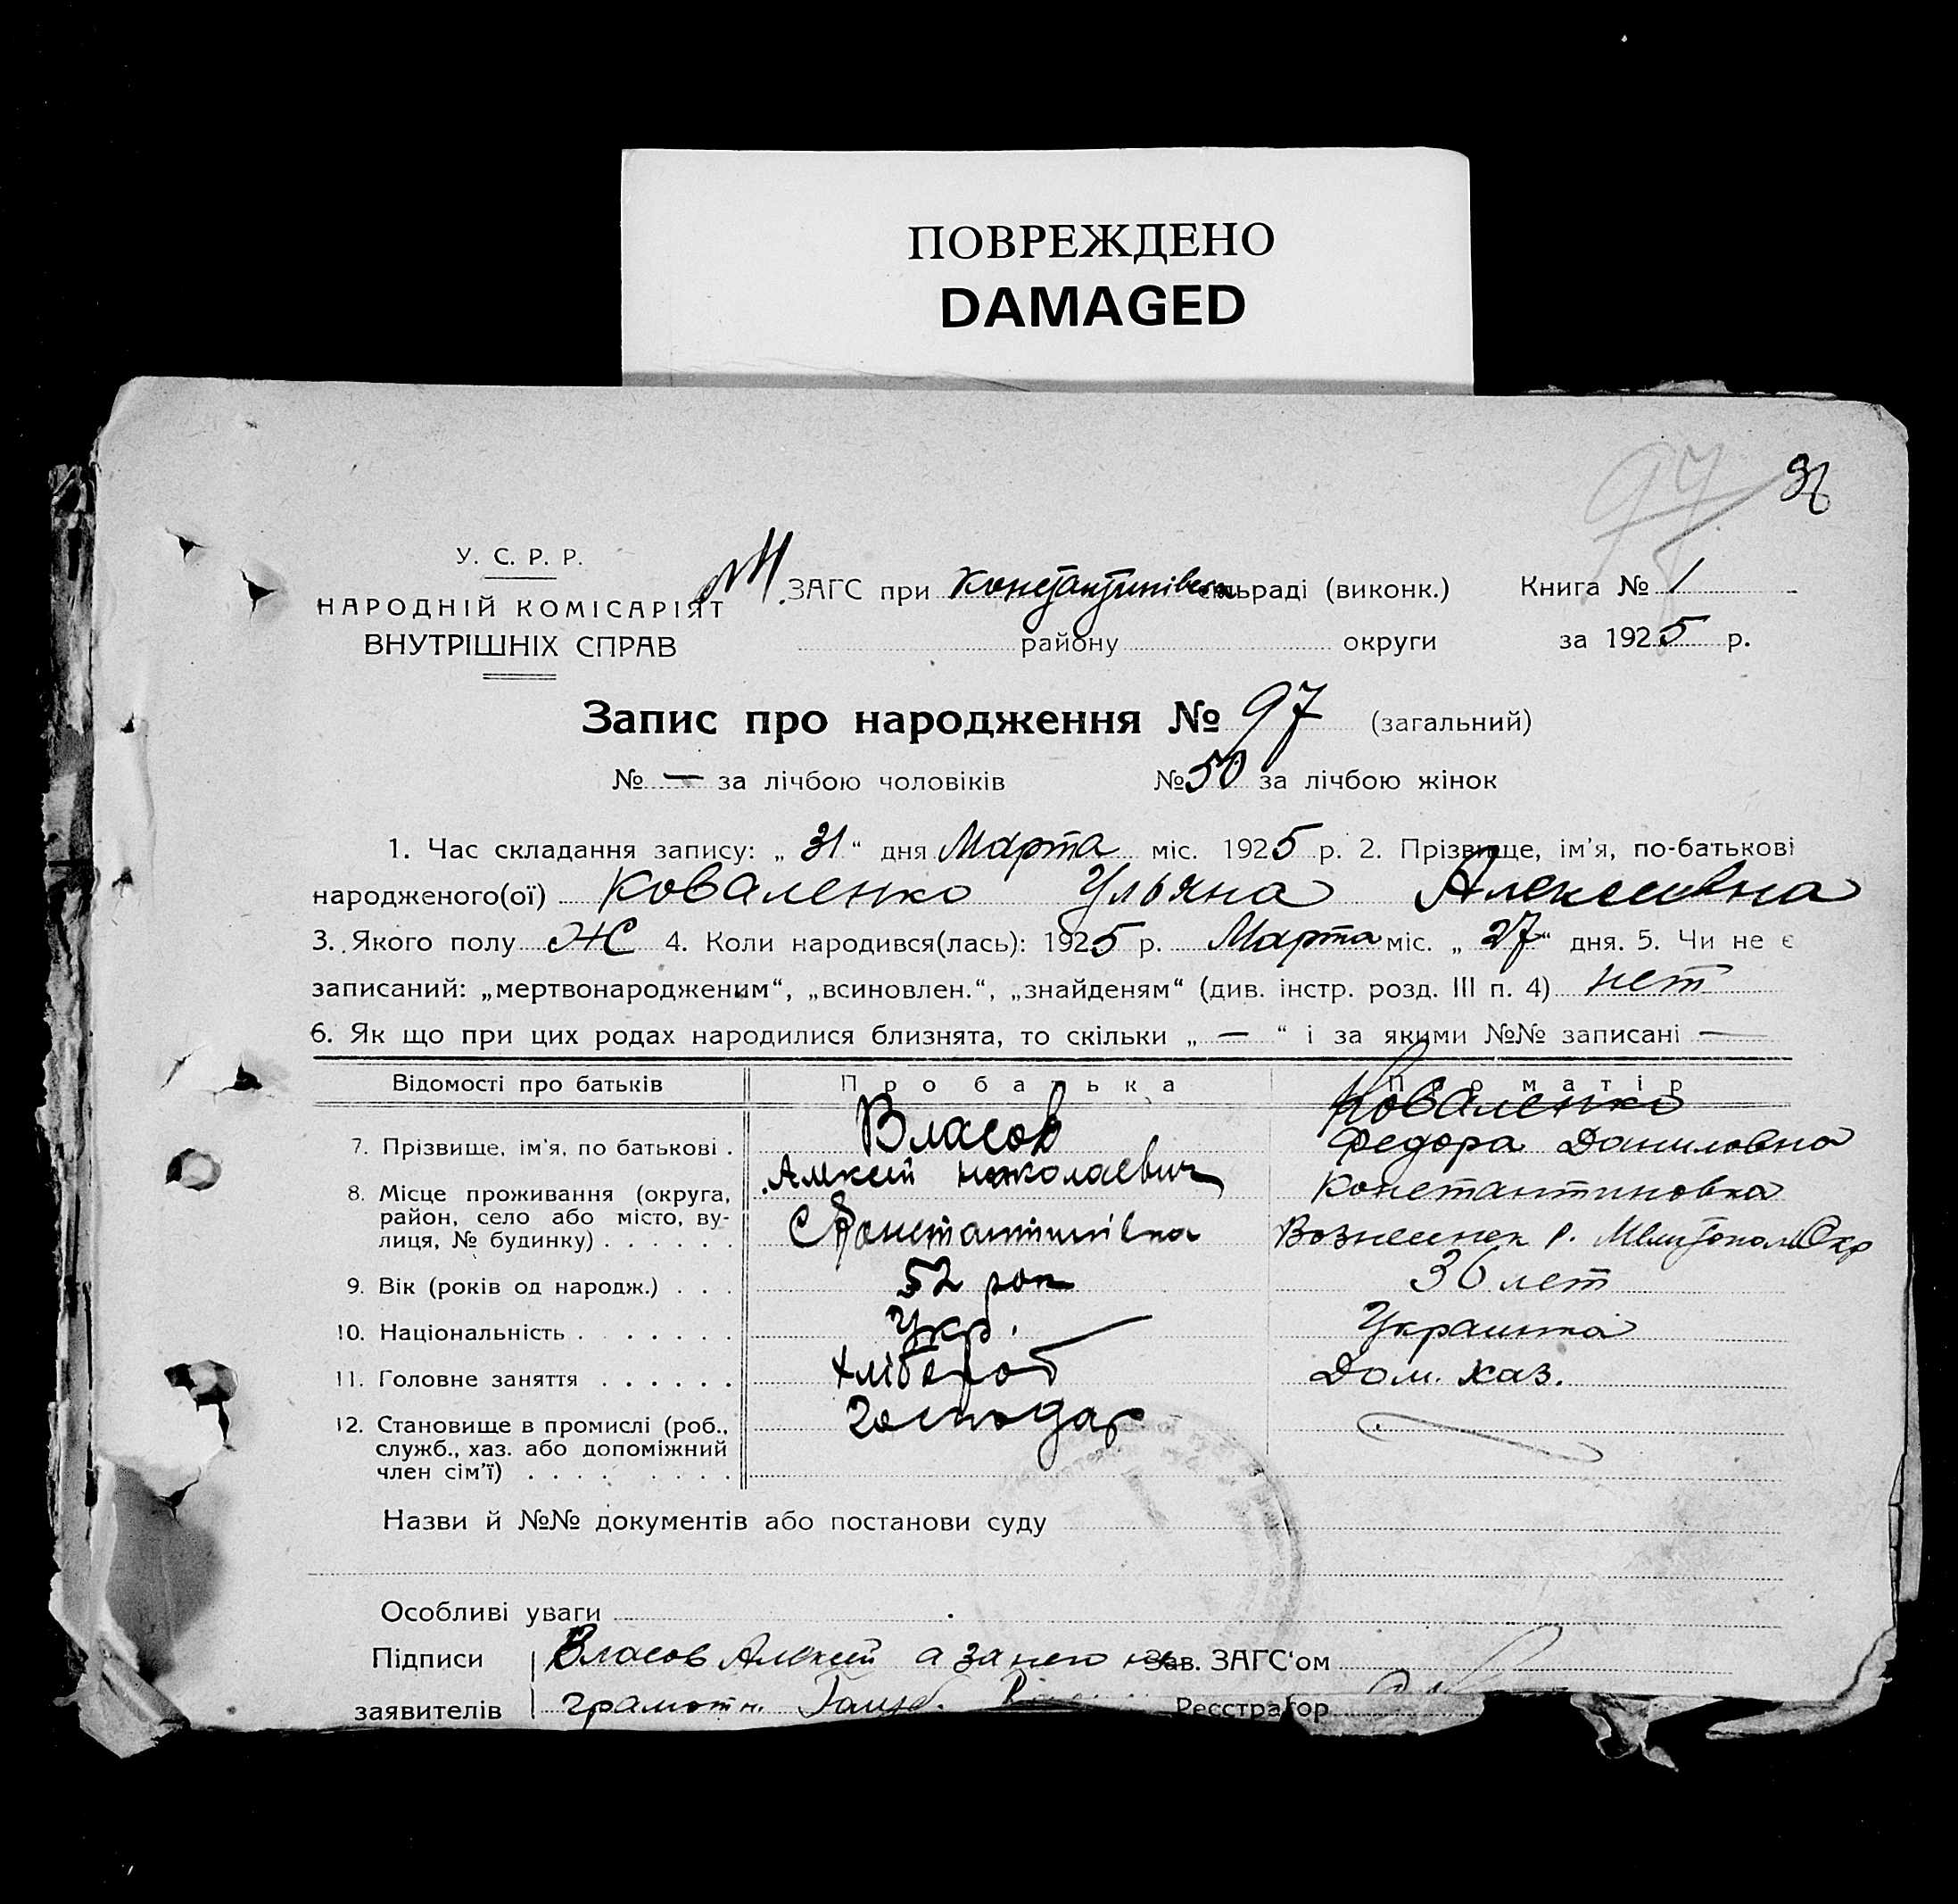 ПОВРЕЖДЕНО
DAMAGED
97
96
У. С. Р. Р.
НАРОДНІЙ КОМІСАРІЯТ
ВНУТРІШНІХ СПРАВ
ЗАГС при Констянтинівськ сільраді (виконк.)
району округи
Книга № 1
за 1925 р.
Запис про народження № 97 (загальний)
№ — за лічбою чоловіків № 50 за лічбою жінок
1. Час складання запису: „ 31 “ дня Марта міс. 1925 р. 2. Прізвище, ім’я, по-батькові
народженого(ої) Коваленко Ульяна Алексеевна
3. Якого полу Ж 4. Коли народився(лась): 1925 р. Марта міс. „ 27 “ дня. 5. Чи не є
записаний: „мертвонародженим“, „всиновлен.“, „знайденям“ (див. інстр. розд. III п. 4) нет
6. Як що при цих родах народилися близнята, то скільки „ — “ і за якими №№ записані —
Відомості про батьків Про батька Про матір
7. Прізвище, ім’я, по батькові . Власов Алксей Николаевич Коваленко Федора Даниловна
8. Місце проживання (округа,
район, село або місто, ву-
лиця, № будинку) . . . . . . С Константинівка Константиновка
Вознесенск р. Мелитопол Окр
9. Вік (років од народж.) . . . 52 рок 36 лет
10. Національність . . . . . . . Укр. Украинка
11. Головне заняття . . . . . . Хлібероб Дом. хаз.
12. Становище в промислі (роб.,
служб., хаз. або допоміжний
член сім’ї) . . . . . . . . Господар
Назви й №№ документів або постанови суду
Особливі уваги
Підписи Власов Алексей а за него не Зав. ЗАГС‘ом
заявителів грамотн. Реєстратор